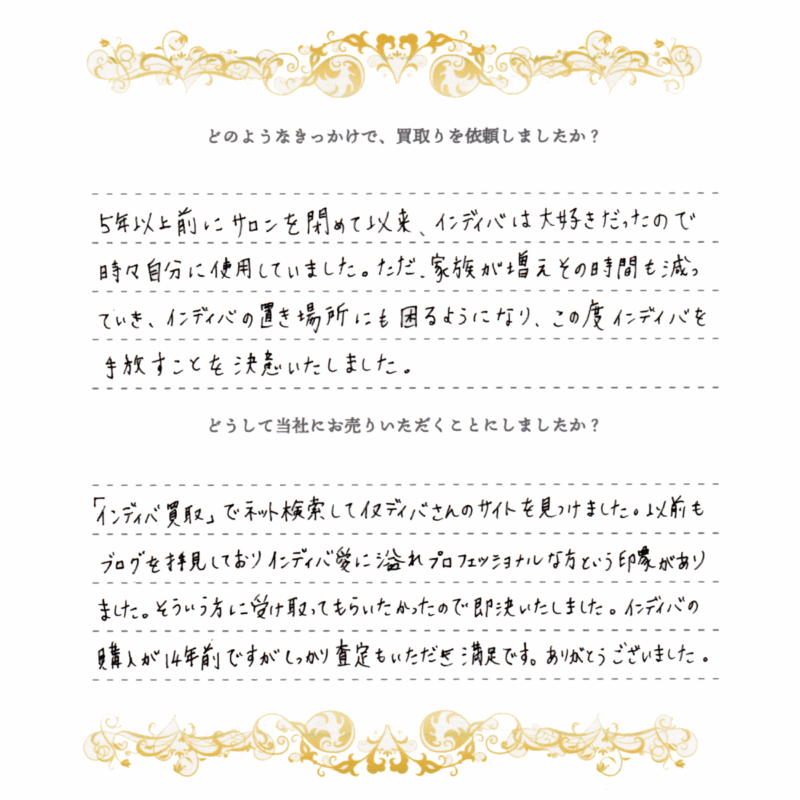 どのようなきっかけで、買取りを依頼しましたか？
5年以上前にサロンを閉めて以来、インディバは大好きだったので
時々自分に使用していました。ただ、家族が増えその時間も減っ
ていき、インディバの置き場所にも困るようになり、この度インディバを
手放すことを決意いたしました。
どうして当社にお売りいただくことにしましたか？
「インディバ買取」でネット検索してイヌディバさんのサイトを見つけました。以前も
ブログを拝見しておりインディバ愛に溢れプロフェッショナルな方という印象があり
ました。そういう方に受け取ってもらいたかったので即決いたしました。インディバの
購入が14年前ですがしっかり査定もいただき満足です。ありがとうございました。